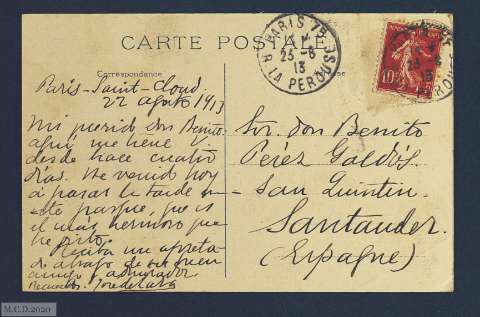 CARTE POSTALE
Correspondance
Paris-Saint-Cloud
22 agosto 1913
Mi querido Don Benito:
aquí me tiene V.
desde hace cuatro
días. He venido hoy
á pasar la tarde en
este parque, que es
el más hermoso que
he visto.
Reciba un apreta-
do abrazo de su buen
amigo y admirador
Sor. Don Benito
Pérez Galdós.
San Quintin.
Santander.
(Espagne)
PARIS
25-8
13
R LA PEROUSE
10
M.C.D.2020